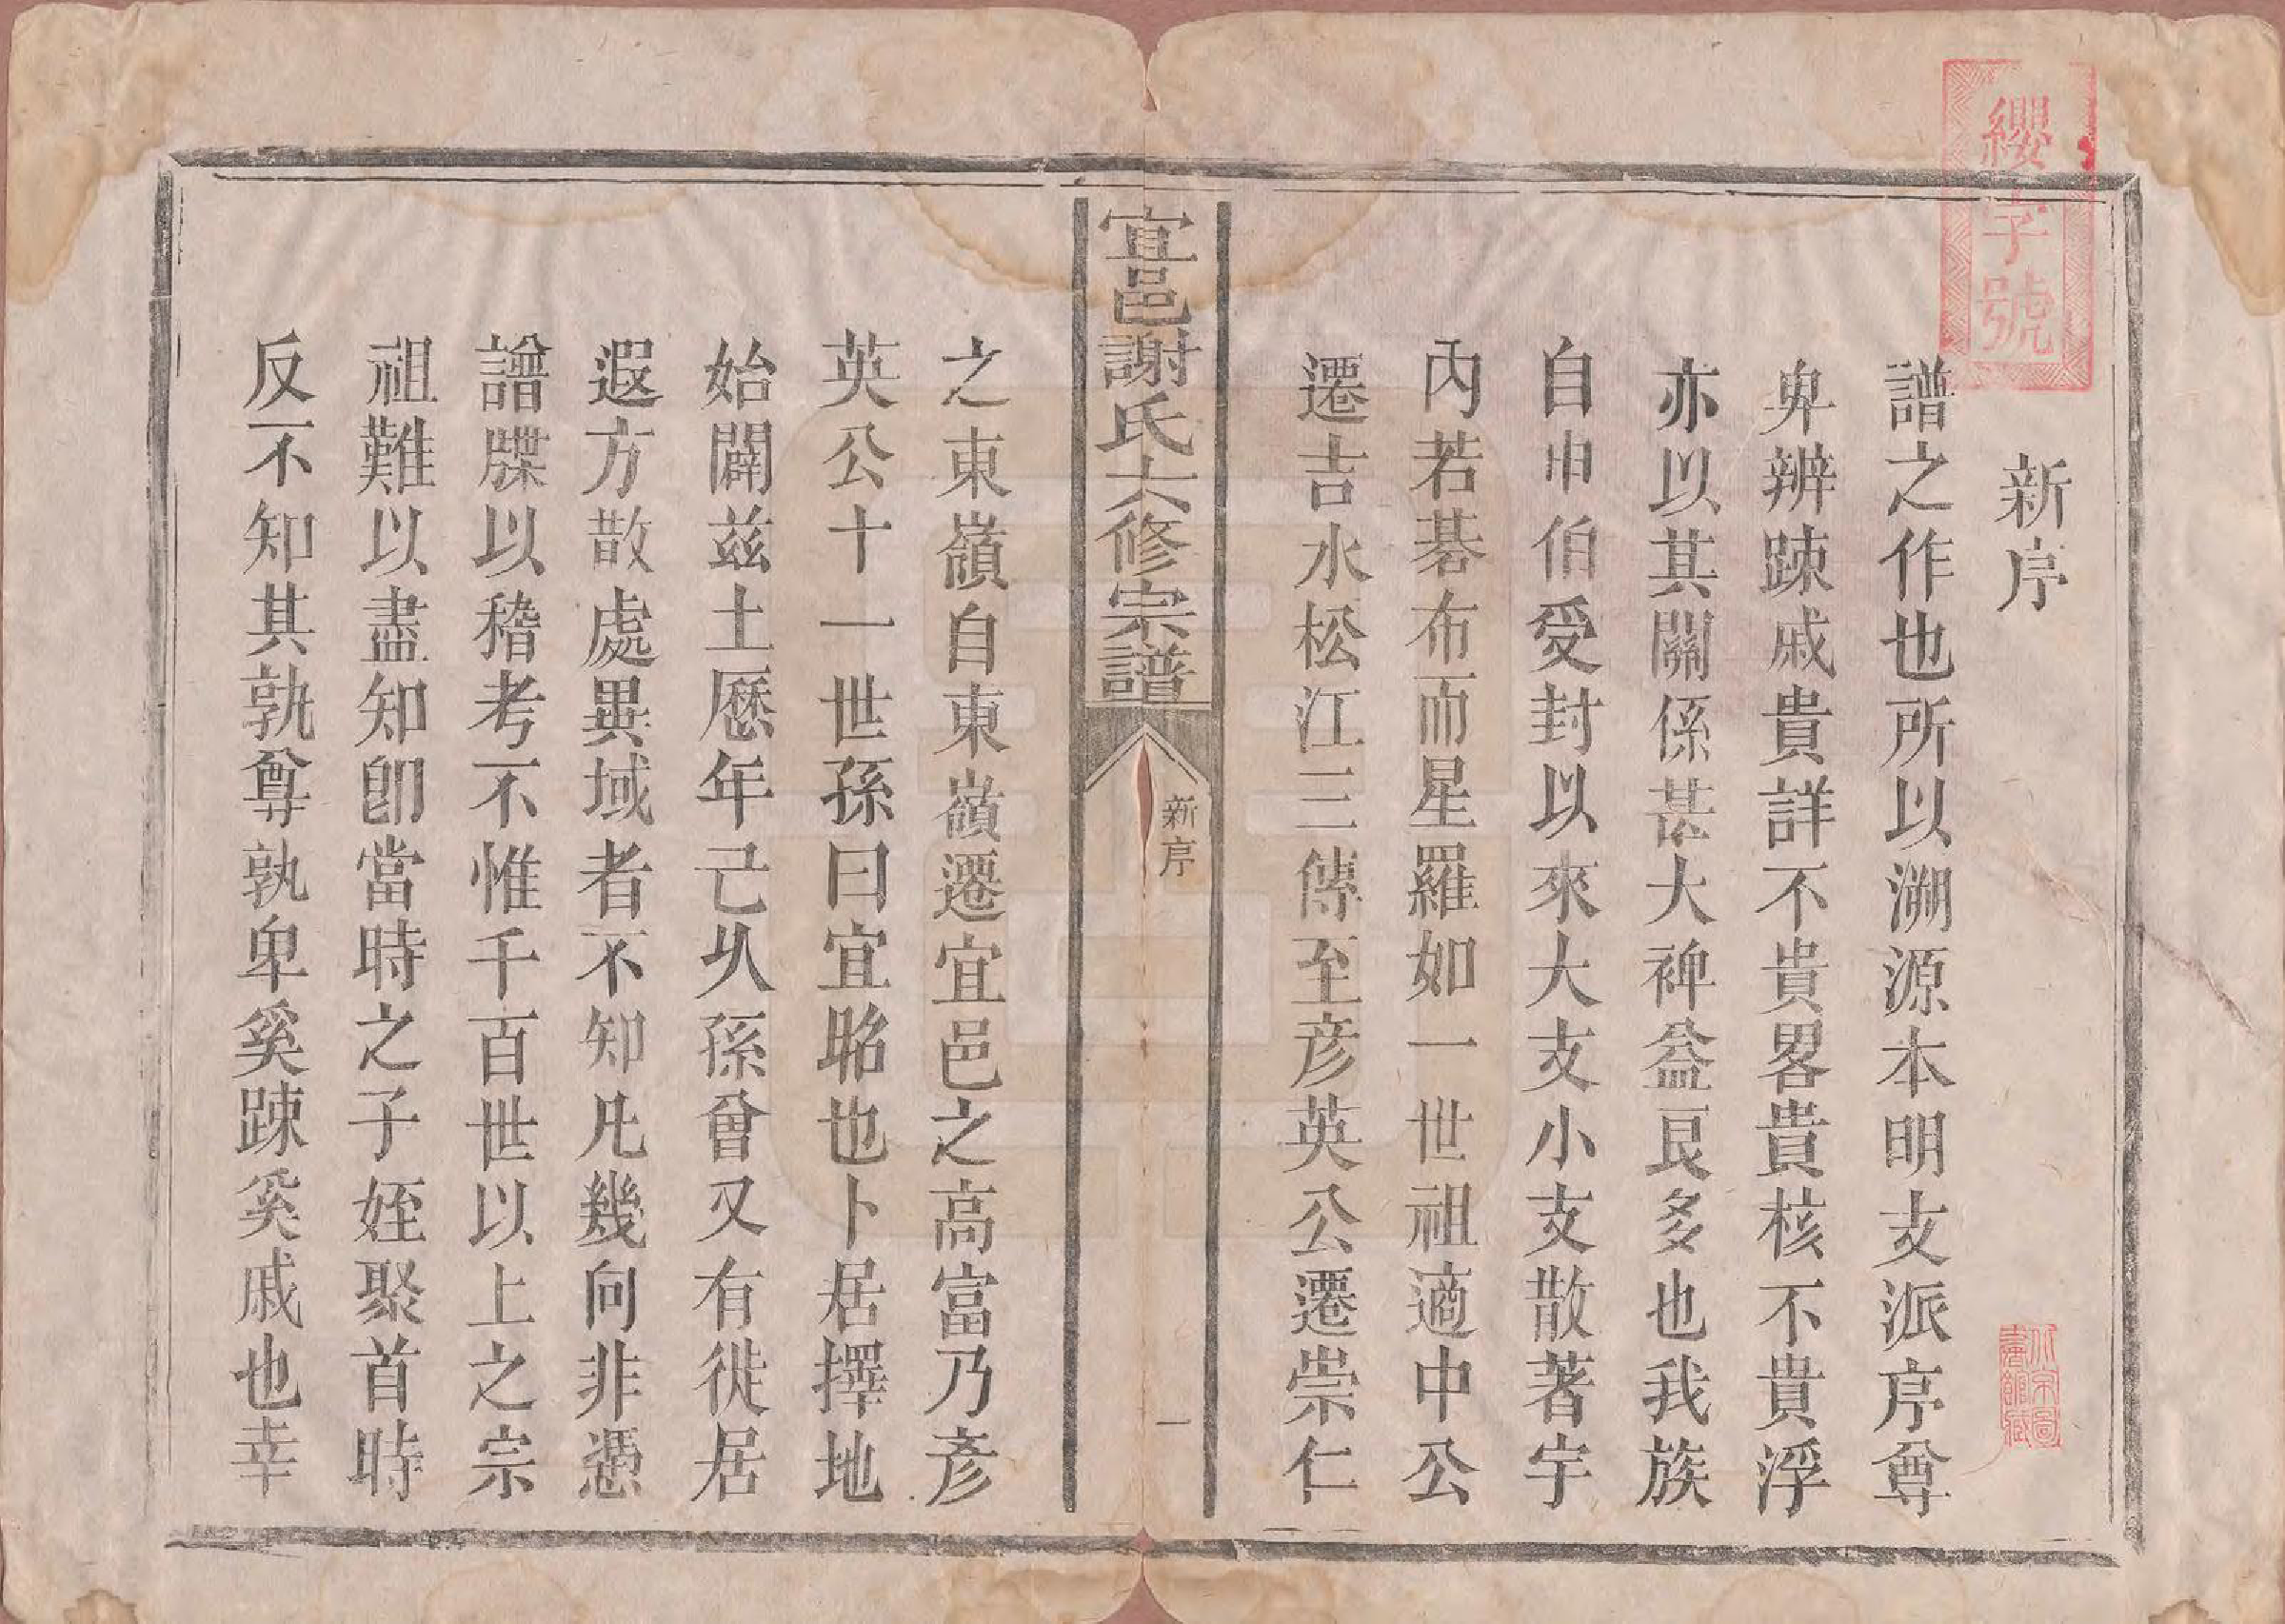 纓字號
新序
譜之作也所以溯源本明支派序尊
卑辨踈戚貴詳不貴畧貴核不貴浮
亦以其關係甚大裨益艮多也我族
自申伯受封以來大支小支散著宇
內若碁布而星羅如一世祖適中公
遷吉水松江三傳至彦英公遷崇仁
宜邑謝氏六修宗譜
新序
一
之東嶺自東嶺遷宜邑之高富乃彥
英公十一世孫曰宜昭也卜居擇地
始闢兹土歷年已乆孫曾又有徙居
遐方散處異域者不知凡幾向非憑
譜牒以稽考不惟千百世以上之宗
祖難以盡知卽當時之子姪聚首時
反不知其孰尊孰卑奚踈奚戚也幸